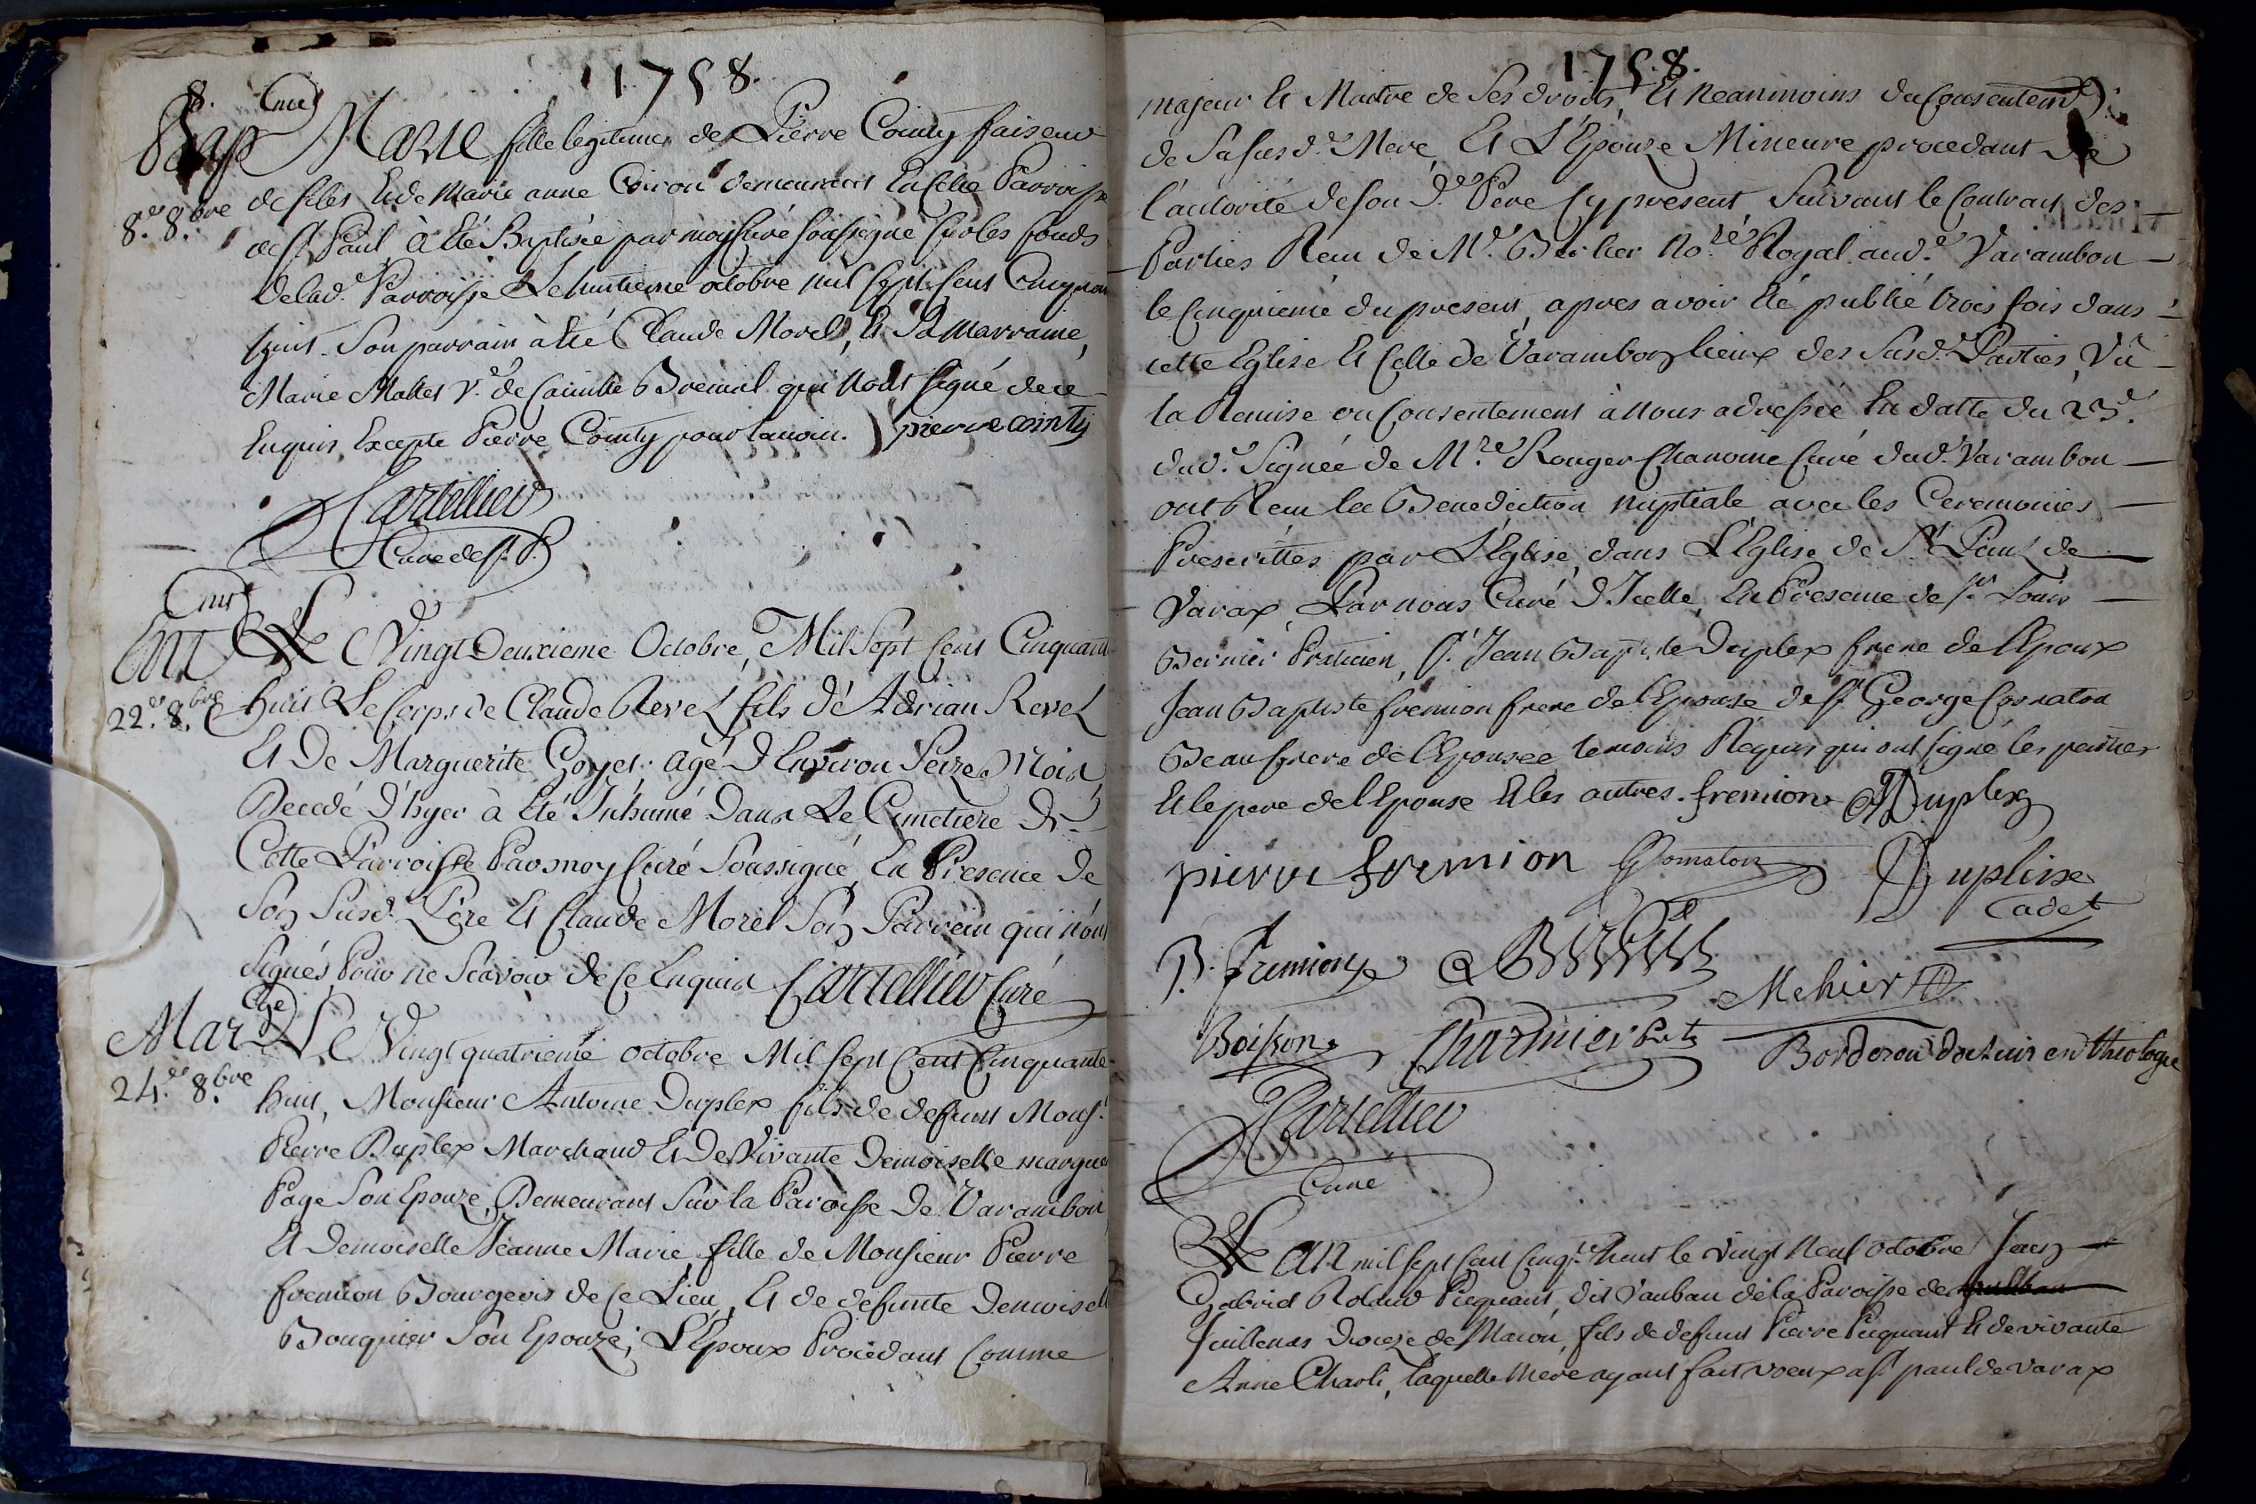 1758.
8.
Bap
8.e 8.bre
Marie fille legitime de Pierre Cointy faiseur
de files et de Marie anne demeurants en cette Parroisse
de St Paul à été Baptisée par moy Curé soussigné sur les fonds
de lad.e Parroisse Le huitieme octobre mil sept cent Cinquante
huit. Son parrain à été Claude Morel, et Sa Marraine,
Marie Mallet V.e de Bremal qui n'ont signé de ce
Enquis, Excepté Pierre Cointy pour la
pierre cointy
Cartellier
Curé de St. P.
Ent
22.e 8.bre
Le Vingt Deuxieme Octobre, Mil Sept Cent Cinquante
huit Le Corps de Claude Revel fils d'Adrian Revel
Et De Marguerite Goyet. agé D'Environ Seize Mois
Decedé D'hyer à Eté Inhumé Dans Le Cimetiere De
Cette Parroisse Par moy Curé Soussigné, En Presence De
Son Susd. Pere Et Claude Morel Son Parrein qui n'ont
Signés Pour ne Scavoir de Ce Enquis Cartellier Curé
Mar
24.e 8.bre
Le Vingt quatrieme octobre Mil Sept Cent Cinquante
huit, Monsieur Antoine Duplex fils de defunt Mons.r
Pierre Duplex Marchand Et De Vivante Demoiselle margue
Page Son Epouze, Demeurant Sur la Paroisse De Varambon
Et Demoiselle Jeanne Marie, fille de Monsieur Pierre
fremion Bourgeois de Ce Lieu, Et de defunte Demoiselle
Bouquier Son Epouze; L'Epoux Procedant Comme
1758.
majeur Et Maitre de Ses droits, Et Neanmoins du Consentem.t
de Sa Susd.e Mere, Et L'Epouze Mineure procedant de
l'autorité de son d.e Pere Cy present Suivant le Contrat des
Parties Reçu de M.e No.re Royal aud.e Varambon
le Cinquieme du present, apres avoir Eté publié trois fois dans
cette Eglise Et Celle de Varambon lieux des Susd.es Parties, Vû
la Remise ou Consentement à Nous adressée En datte du 23.e
dud.e Signée de M.re Rouger Chanoine Curé dud.e Varambon
ont Reçu la Benediction Nuptiale avec les Ceremonies
Prescrittes par L'Eglise, dans L'Eglise de St Paul de
Varax, Par nous Curé D'Icelle, En Presence de Sr. Louis
Bernier Praticien, Sr. Jean Baptiste Duplex frere de l'Epoux
Jean Baptiste fremion frere de l'Epouse de Sr George
Beaufrere de l'Epousée temoins Requis qui ont signé les parties
Et le pere de l'Epouse Et les autres. fremion Duplex
pierre fremion Duplisse
Cadet
P. fremion
Mehier
Boisson Charmier Prte Borderou docteur en theologie
Cartellier
Curé
L'An mil sept cent cinq.te huit le Vingt Neuf octobre Jean
Gabriel Roland Picquant, dit Vauban de la Paroisse de
Juillenas Dioceze de Macon, fils de defunt Pierre Picquant Et de vivante
Anne Charli, laquelle Mere ayant fait Voeux a St paul de Varax